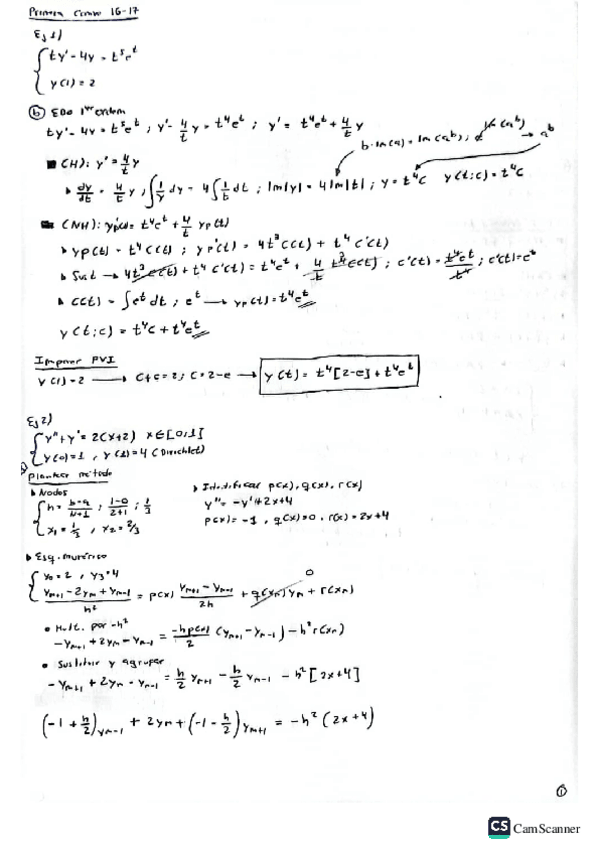 Primera Conv 16-17
Ej 1)
ty' - 4y = t⁵eᵗ
y(1) = 2
(b) EDO 1er orden
ty' - 4y = t⁵eᵗ ; y' - 4/t y = t⁴eᵗ ; y' = t⁴eᵗ + 4/t y
b·ln(a) = ln(aᵇ) ; e^ln(aᵇ) → aᵇ
(H): y' = 4/t y
dy/dt = 4/t y ; ∫1/y dy = 4∫1/t dt ; ln|y| = 4ln|t| ; y = t⁴c y(t;c) = t⁴c
(NH): y'p(t) = t⁴eᵗ + 4/t yp(t)
yp(t) = t⁴c(t) ; yp'(t) = 4t³c(t) + t⁴c'(t)
Sust → 4t³c(t) + t⁴c'(t) = t⁴eᵗ + 4/t t⁴c(t) ; c'(t) = t⁴eᵗ/t⁴ ; c'(t) = eᵗ
c(t) = ∫eᵗdt ; eᵗ → yp(t) = t⁴eᵗ
y(t;c) = t⁴c + t⁴eᵗ
Imponer PVI
y(1) = 2 → c+e = 2 ; c = 2-e → y(t) = t⁴[2-e] + t⁴eᵗ
Ej 2)
y'' + y' = 2(x+2) x∈[0,1]
y(0) = 1 , y(1) = 4 (Dirichlet)
Plantear método
Nodos
h = b-a/N+1 ; 1-0/2+1 ; 1/3
x₁ = 1/3 , x₂ = 2/3
Identificar p(x), q(x), r(x)
y'' = -y' + 2x+4
p(x) = -1 , q(x) = 0 , r(x) = 2x+4
Esq. numérico
y₀ = 2 , y₃ = 4
yₙ₊₁ - 2yₙ + yₙ₋₁/h² = p(x) yₙ₊₁ - yₙ₋₁/2h + q(xₙ)yₙ + r(xₙ)
0
Mult. por -h²
-yₙ₊₁ + 2yₙ - yₙ₋₁ = -hp(x)/2 (yₙ₊₁ - yₙ₋₁) - h²r(xₙ)
Sustituir y agrupar
-yₙ₊₁ + 2yₙ - yₙ₋₁ = h/2 yₙ₊₁ - h/2 yₙ₋₁ - h²[2x+4]
(-1 + h/2)yₙ₋₁ + 2yₙ + (-1 - h/2)yₙ₊₁ = -h²(2x+4)
1
CS CamScanner